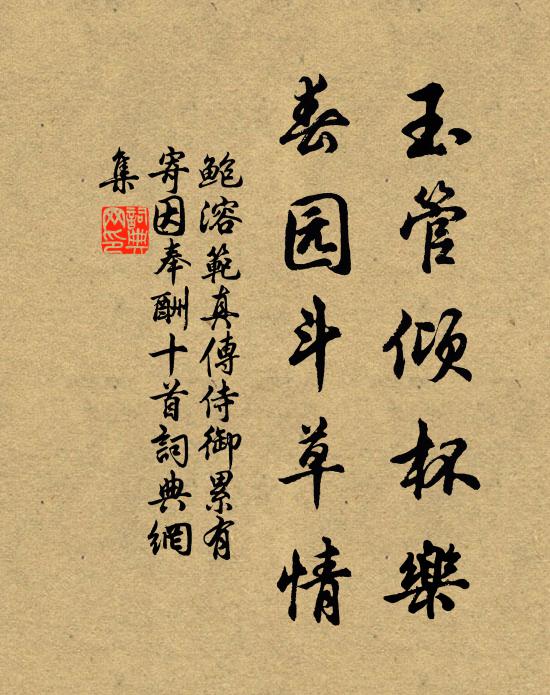 玉管倾杯樂
春园斗草情
鲍溶範真傳侍御累有
寄因奉酬十首詞典網
集
詞典网印